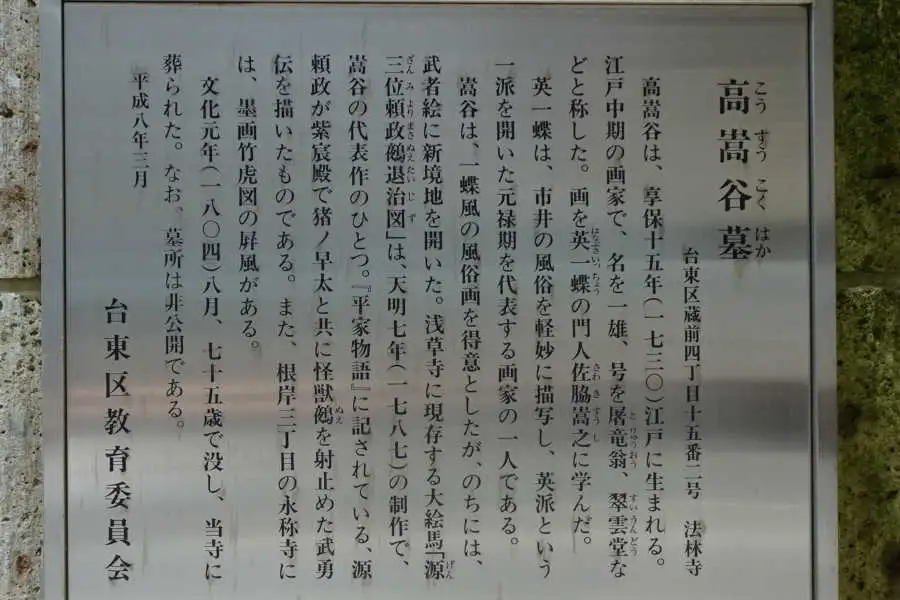 高嵩谷墓
こう すう こく はか
台東区蔵前四丁目十五番二号 法林寺
高嵩谷は、享保十五年(一七三〇)江戸に生まれる。
江戸中期の画家で、名を一雄、号を屠竜翁、翠雲堂な
どと称した。画を英一蝶の門人佐脇嵩之に学んだ。
英一蝶は、市井の風俗を軽妙に描写し、英派という
一派を開いた元禄期を代表する画家の一人である。
嵩谷は、一蝶風の風俗画を得意としたが、のちには、
武者絵に新境地を開いた。浅草寺に現存する大絵馬「源
三位頼政鵺退治図」は、天明七年(一七八七)の制作で、
嵩谷の代表作のひとつ。『平家物語』に記されている、源
頼政が紫宸殿で猪ノ早太と共に怪獣鵺を射止めた武勇
伝を描いたものである。また、根岸三丁目の永称寺に
は、墨画竹虎図の屛風がある。
文化元年(一八〇四)八月、七十五歳で没し、当寺に
葬られた。なお、墓所は非公開である。
平成八年三月
台東区教育委員会